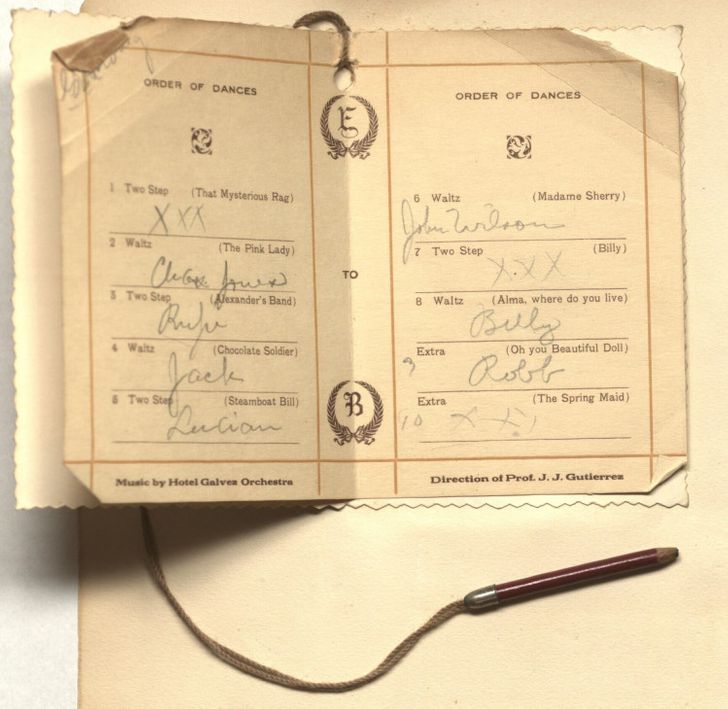 ORDER OF DANCES
1 Two Step (That Mysterious Rag)
XXX
2 Waltz (The Pink Lady)
Chas. Jones
3 Two Step (Alexander's Band)
Rufe
4 Waltz (Chocolate Soldier)
Jack
5 Two Step (Steamboat Bill)
Lucian
Music by Hotel Galvez Orchestra
E
TO
B
ORDER OF DANCES
6 Waltz (Madame Sherry)
John Wilson
7 Two Step (Billy)
X.XX
8 Waltz (Alma, where do you live)
Billy
Extra (Oh you Beautiful Doll)
9 Robb
Extra (The Spring Maid)
10 X X
Direction of Prof. J. J. Gutierrez